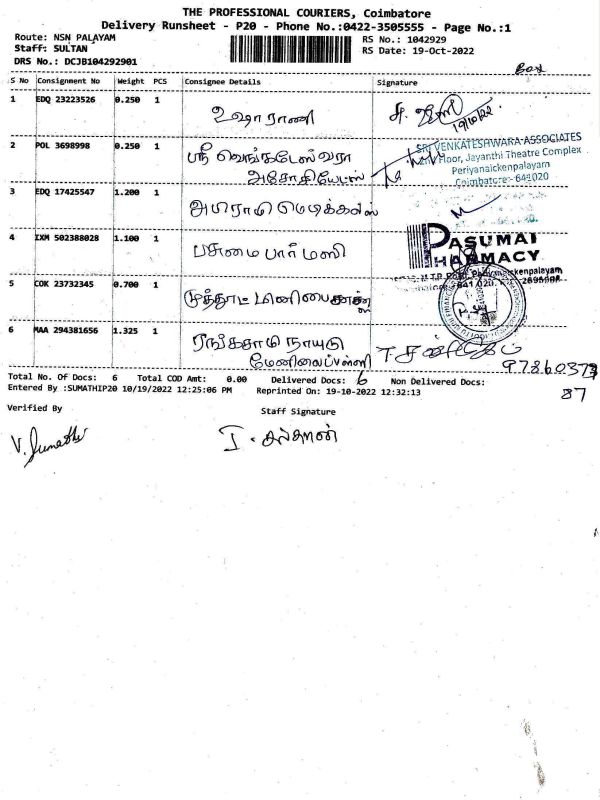 THE PROFESSIONAL COURIERS, Coimbatore
Delivery Runsheet - P20 - Phone No.:0422-3505555 - Page No.:1
Route: NSN PALAYAM
RS No.: 1042929
Staff: SULTAN
RS Date: 19-Oct-2022
DRS No.: DCJB104292901
Box
S No Consignment No Weight PCS Consignee Details Signature
1 EDQ 23223526 0.250 1 உஷா ராணி
19/10/22
2 POL 3698998 0.250 1 ஸ்ரீ வெங்கடேஸ்வரா
அசோசியேட்ஸ்
SRI VENKATESHWARA ASSOCIATES
Floor, Jayanthi Theatre Complex
Periyanaickenpalayam
Coimbatore - 641020
3 EDQ 17425547 1.200 1 அபிராமி மெடிக்கல்ஸ்
4 IXM 502388028 1.100 1 பசுமை பார்மஸி
PASUMAI
PHARMACY
5 COK 23732345 0.700 1
6 MAA 294381656 1.325 1 ரங்கசாமி நாயுடு
மேனிலைப்பள்ளி
97860373
87
Total No. Of Docs: 6 Total COD Amt: 0.00 Delivered Docs: 6 Non Delivered Docs:
Entered By :SUMATHIP20 10/19/2022 12:25:06 PM Reprinted On: 19-10-2022 12:32:13
Verified By
Staff Signature
V. Sumathi
I. சுல்தான்